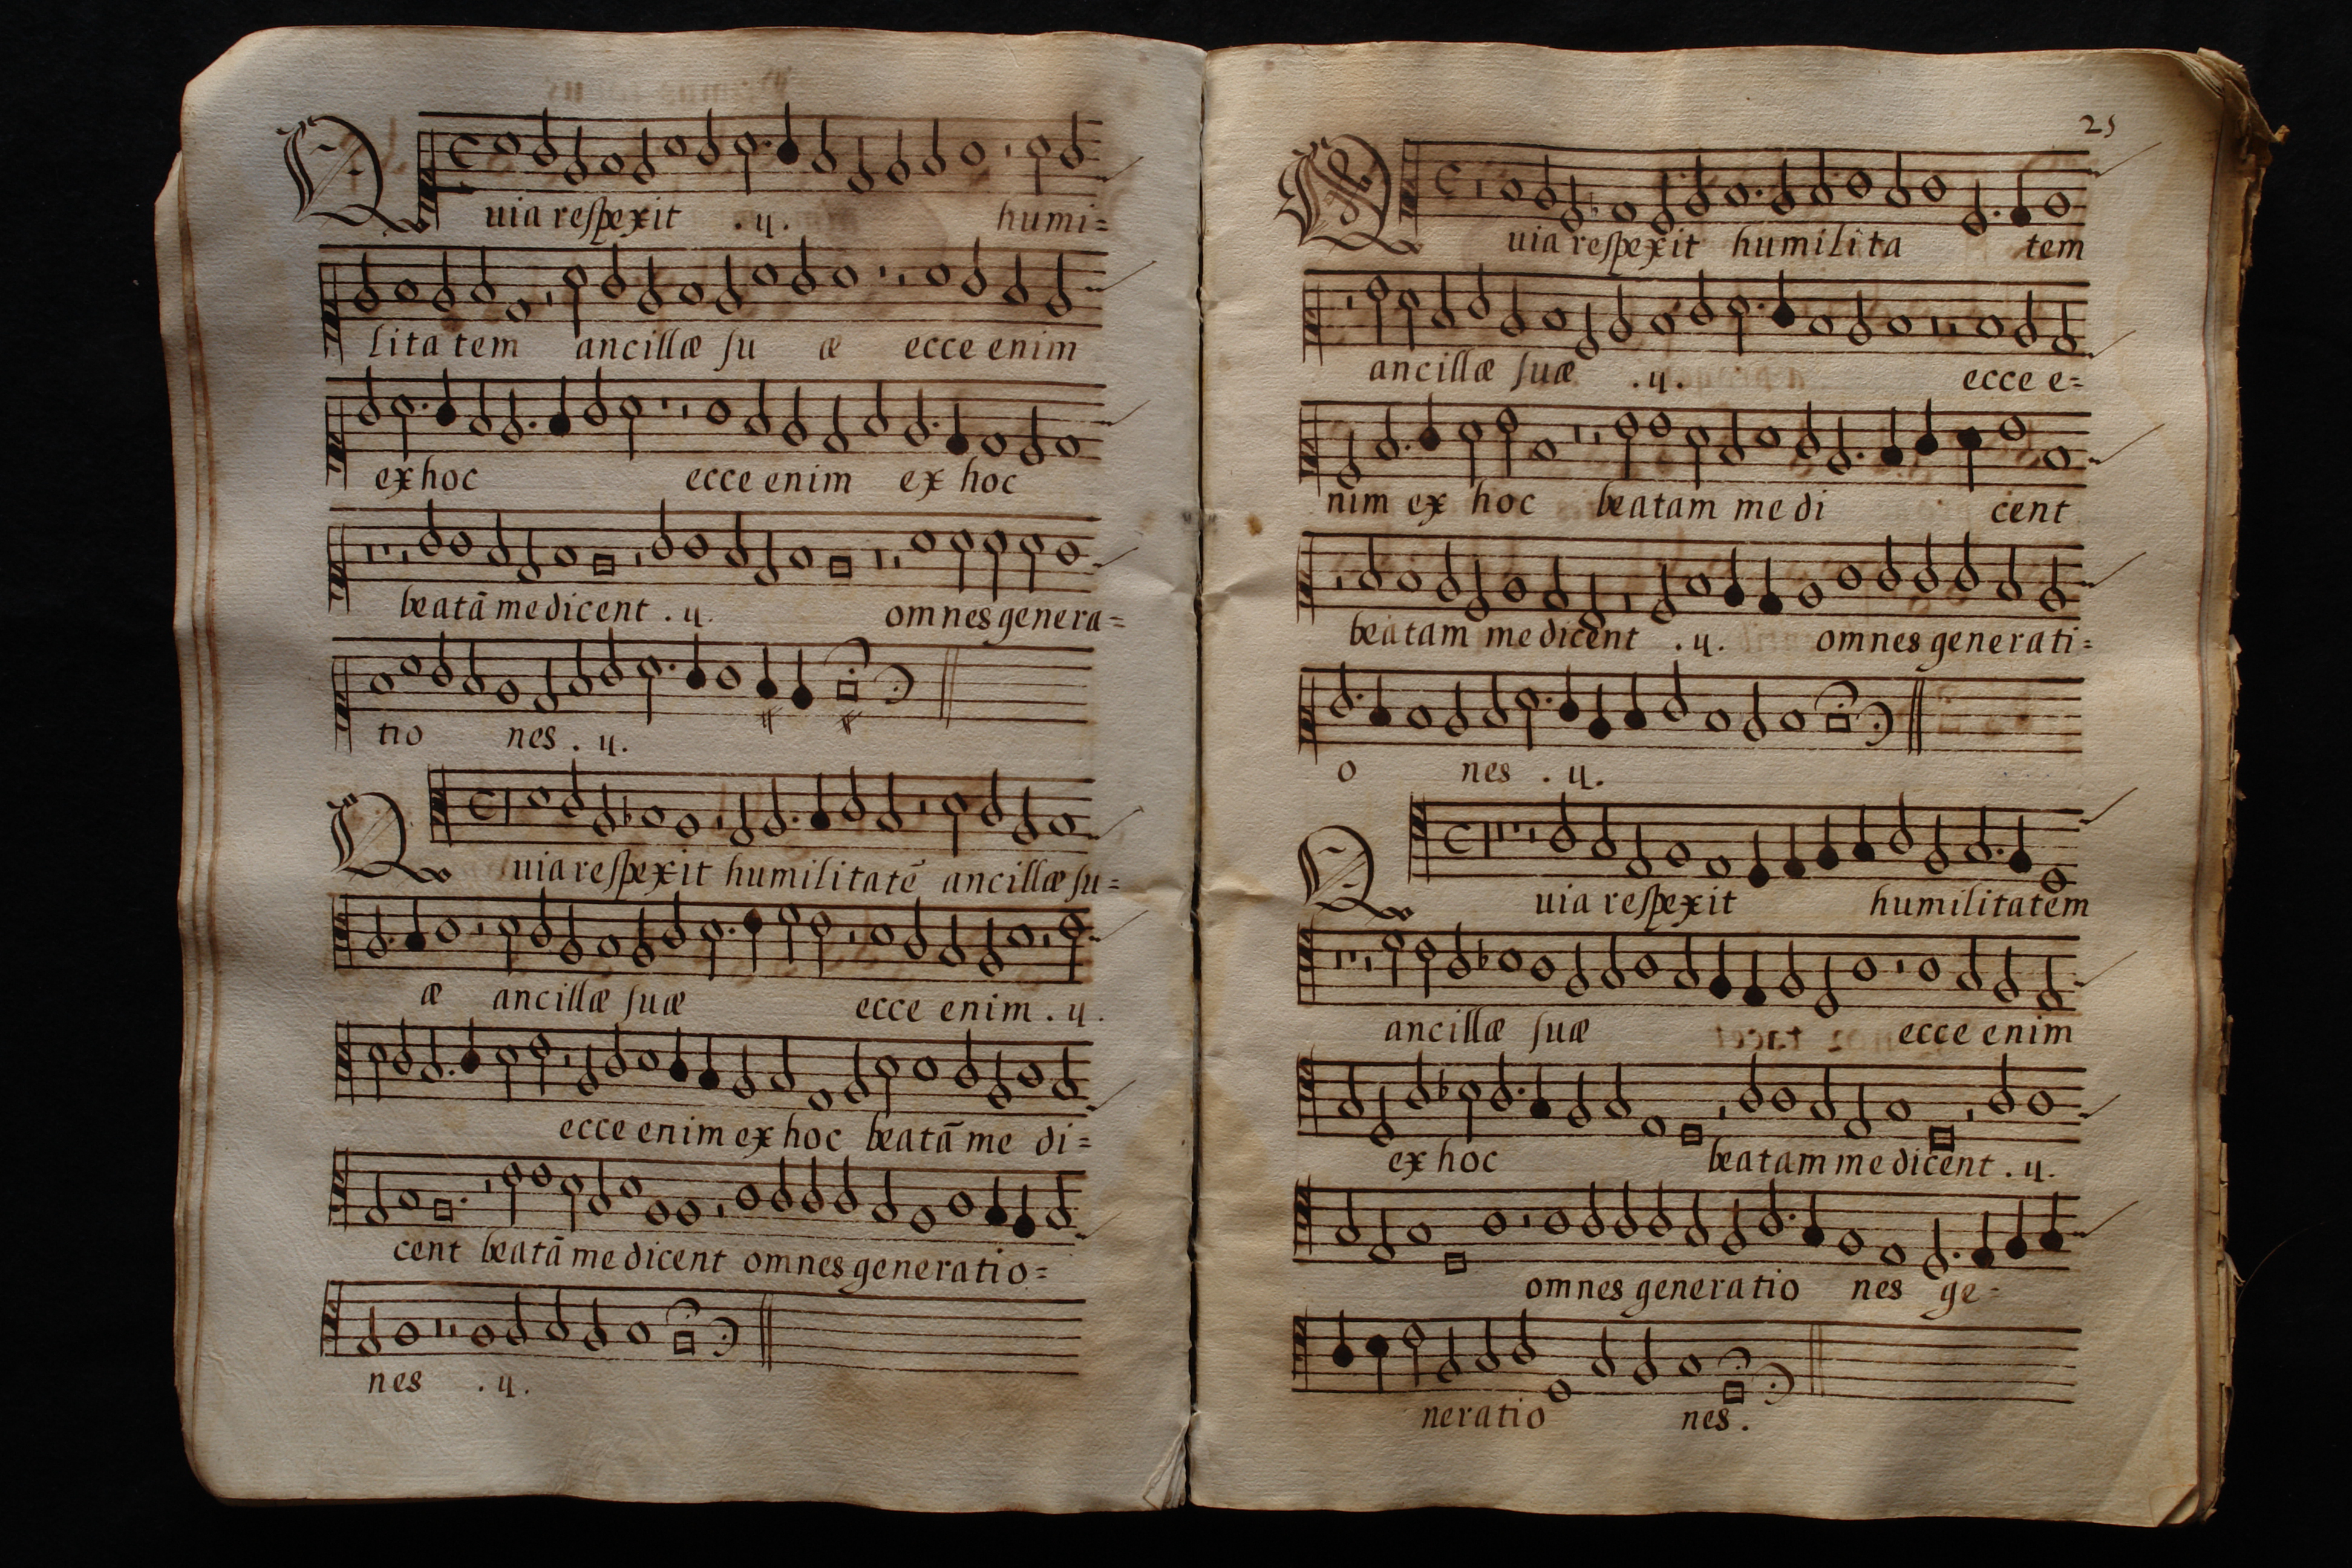 Quia respexit .ij. humi=
litatem ancillæ su æ ecce enim
ex hoc ecce enim ex hoc
beatā me dicent .ij. omnes genera=
tio nes .ij.
Quia respexit humilitatē ancillæ su=
æ ancillæ suæ ecce enim .ij.
ecce enim ex hoc beatā me di=
cent beatā me dicent omnes generatio=
nes .ij.
25
Quia respexit humilita tem
ancillæ suæ .ij. ecce e=
nim ex hoc beatam me di cent
beatam me dicent .ij. omnes generati=
o nes .ij.
Quia respexit humilitatem
ancillæ suæ ecce enim
ex hoc beatam me dicent .ij.
omnes generatio nes ge=
neratio nes.